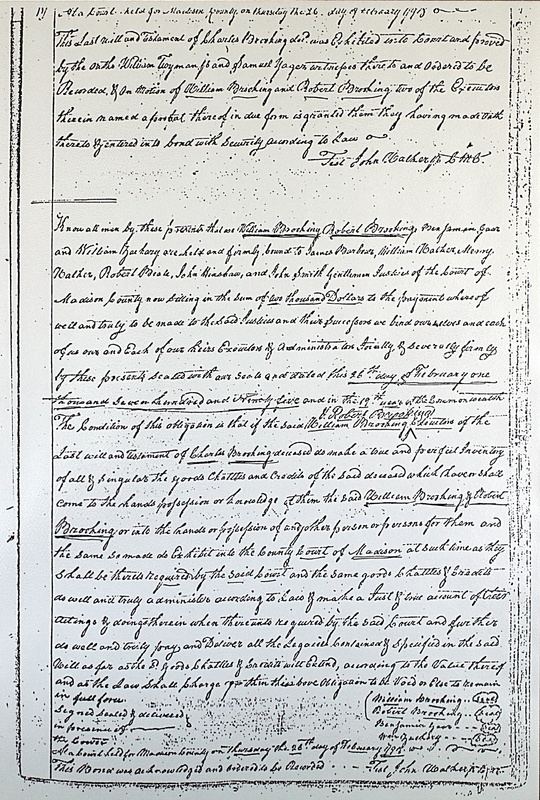 19 At a Court held for Madison County on thursday the 26 day of February 1795
This Last will and testament of Charles Broching decd. was Exhibited into Court and proved
by the oaths William Wyman and Samuel Yager witnesses thereto and ordered to be
Recorded, & on Motion of William Broching and Robert Broching two of the Executors
therein named a probat thereof in due form is granted them they having made oath
thereto & entered into bond with Security according to Law
Test John Walker jr C M C
Know all men by these presents that we William Broching Robert Broching, Benjamin Gaar
and William Zachary are held and firmly bound to James Barbour, William Walker, Merry
Walker, Robert Beale, John Henshaw, and John Smith Gentlemen Justices of the Court of
Madison County now sitting in the sum of two thousand Dollars to the payment whereof
well and truly to be made to the said Justices and their successors we bind ourselves and each
of us our and Each of our Heirs Executors & Administrators Jointly & Severally firmly
by these presents Sealed with our seals and dated this 26th day of February one
thousand Seven hundred and Ninety five and in the 19th year of the Commonwealth
& Robert Broching
The Condition of this obligation is that if the said William Broching Executors of the
Last will and testament of Charles Broching deceased do make a true and perfect Inventory
of all & singular the goods Chattles and Credits of the said deceased which have or shall
come to the hands possession or knowledge of them the said William Broching & Robert
Broching or into the hands or possession of any other person or persons for them and
the same so made do Exhibit into the County Court of Madison at such time as they
shall be thereto required by the said Court and the same goods Chattles & Credits
do well and truly administer according to Law & make a Just & true account of their
actings & doings therein when thereunto required by the said Court and further
do well and truly pay and Deliver all the Legacies Contained & Specified in the said
Will as far as the sd goods Chattles & Credits will Extend, according to the Value thereof
and as the Law Shall Charge them this above Obligation to be Void or Else to Remain
in full force
Signed Sealed & delivered
in presence of
the Court
William Broching Seal
Robert Broching Seal
Benjamin Gaar Seal
Wm Zachary Seal
At a Court held for Madison County on thursday the 26th day of February 1795
This Bond was acknowledged and ordered to be Recorded
Test John Walker jr